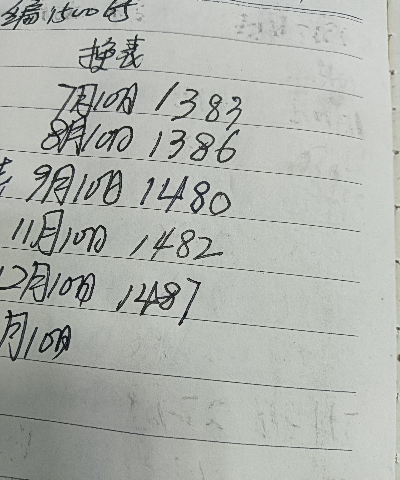 编1500的
换表
7月10日 1383
8月10日 1386
9月10日 1480
11月10日 1482
12月10日 1487
月10日